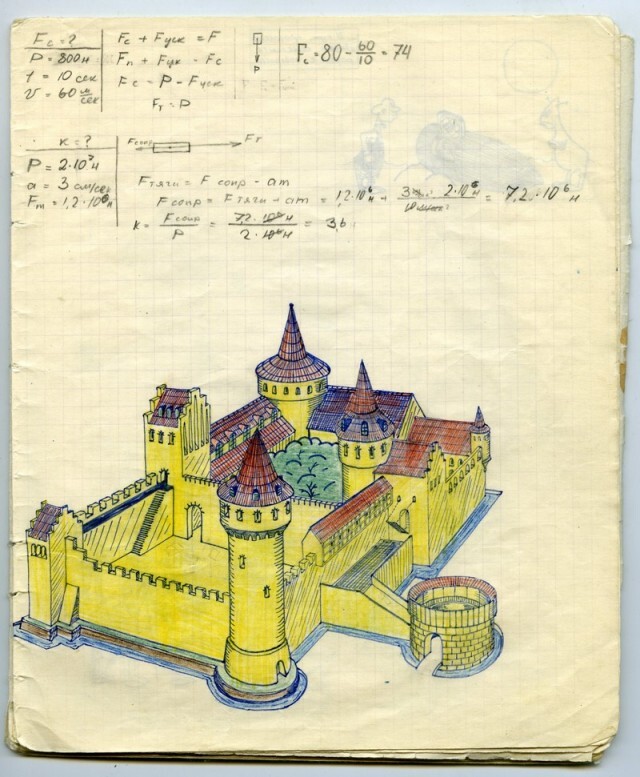 Fc = ?
P = 800н
t = 10 сек
v = 60 м/сек
Fc + Fуск = F
Fп + Fуск = Fc
Fc = P - Fуск
Fт = P
P
Fc = 80 - 60/10 = 74
к = ?
P = 2·10⁷н
a = 3 см/сек
Fт = 1,2·10⁶н
Fсопр
Fт
Fтяги = Fсопр - am
Fсопр = Fтяги - am = 12·10⁶н - 3 2·10⁶н = 7,2·10⁶н
к = Fсопр/P = 7,2·10⁶н/2·10⁶н = 3,6